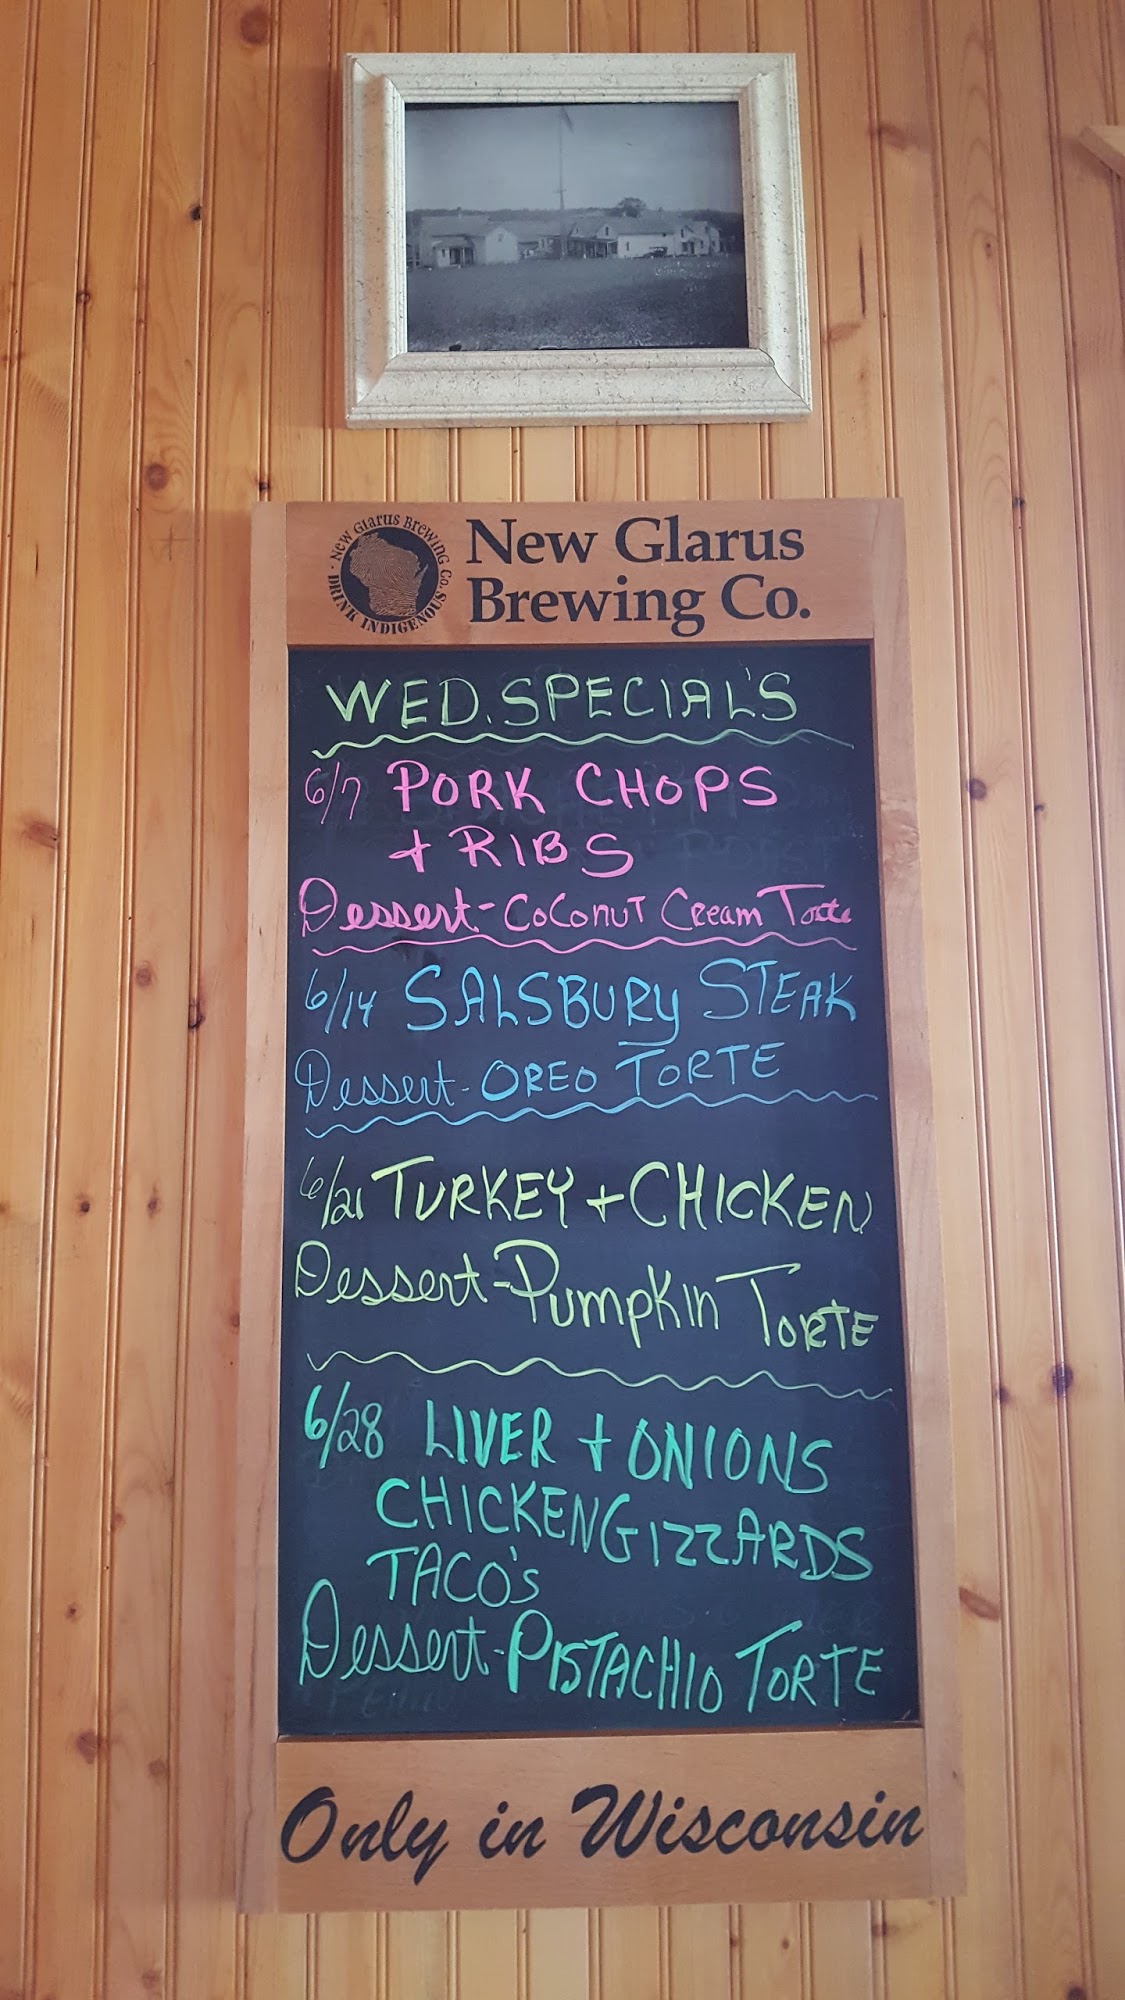 NEW GLARUS BREWING CO.
DRINK INDIGENOUS
New Glarus
Brewing Co.
WED. SPECIAL'S
6/7 PORK CHOPS
+ RIBS
Dessert - COCONUT Cream Torte
6/14 SALSBURY STEAK
Dessert - OREO TORTE
6/21 TURKEY + CHICKEN
Dessert - PUMPKIN TORTE
6/28 LIVER + ONIONS
CHICKEN GIZZARDS
TACO'S
Dessert - PISTACHIO TORTE
Only in Wisconsin